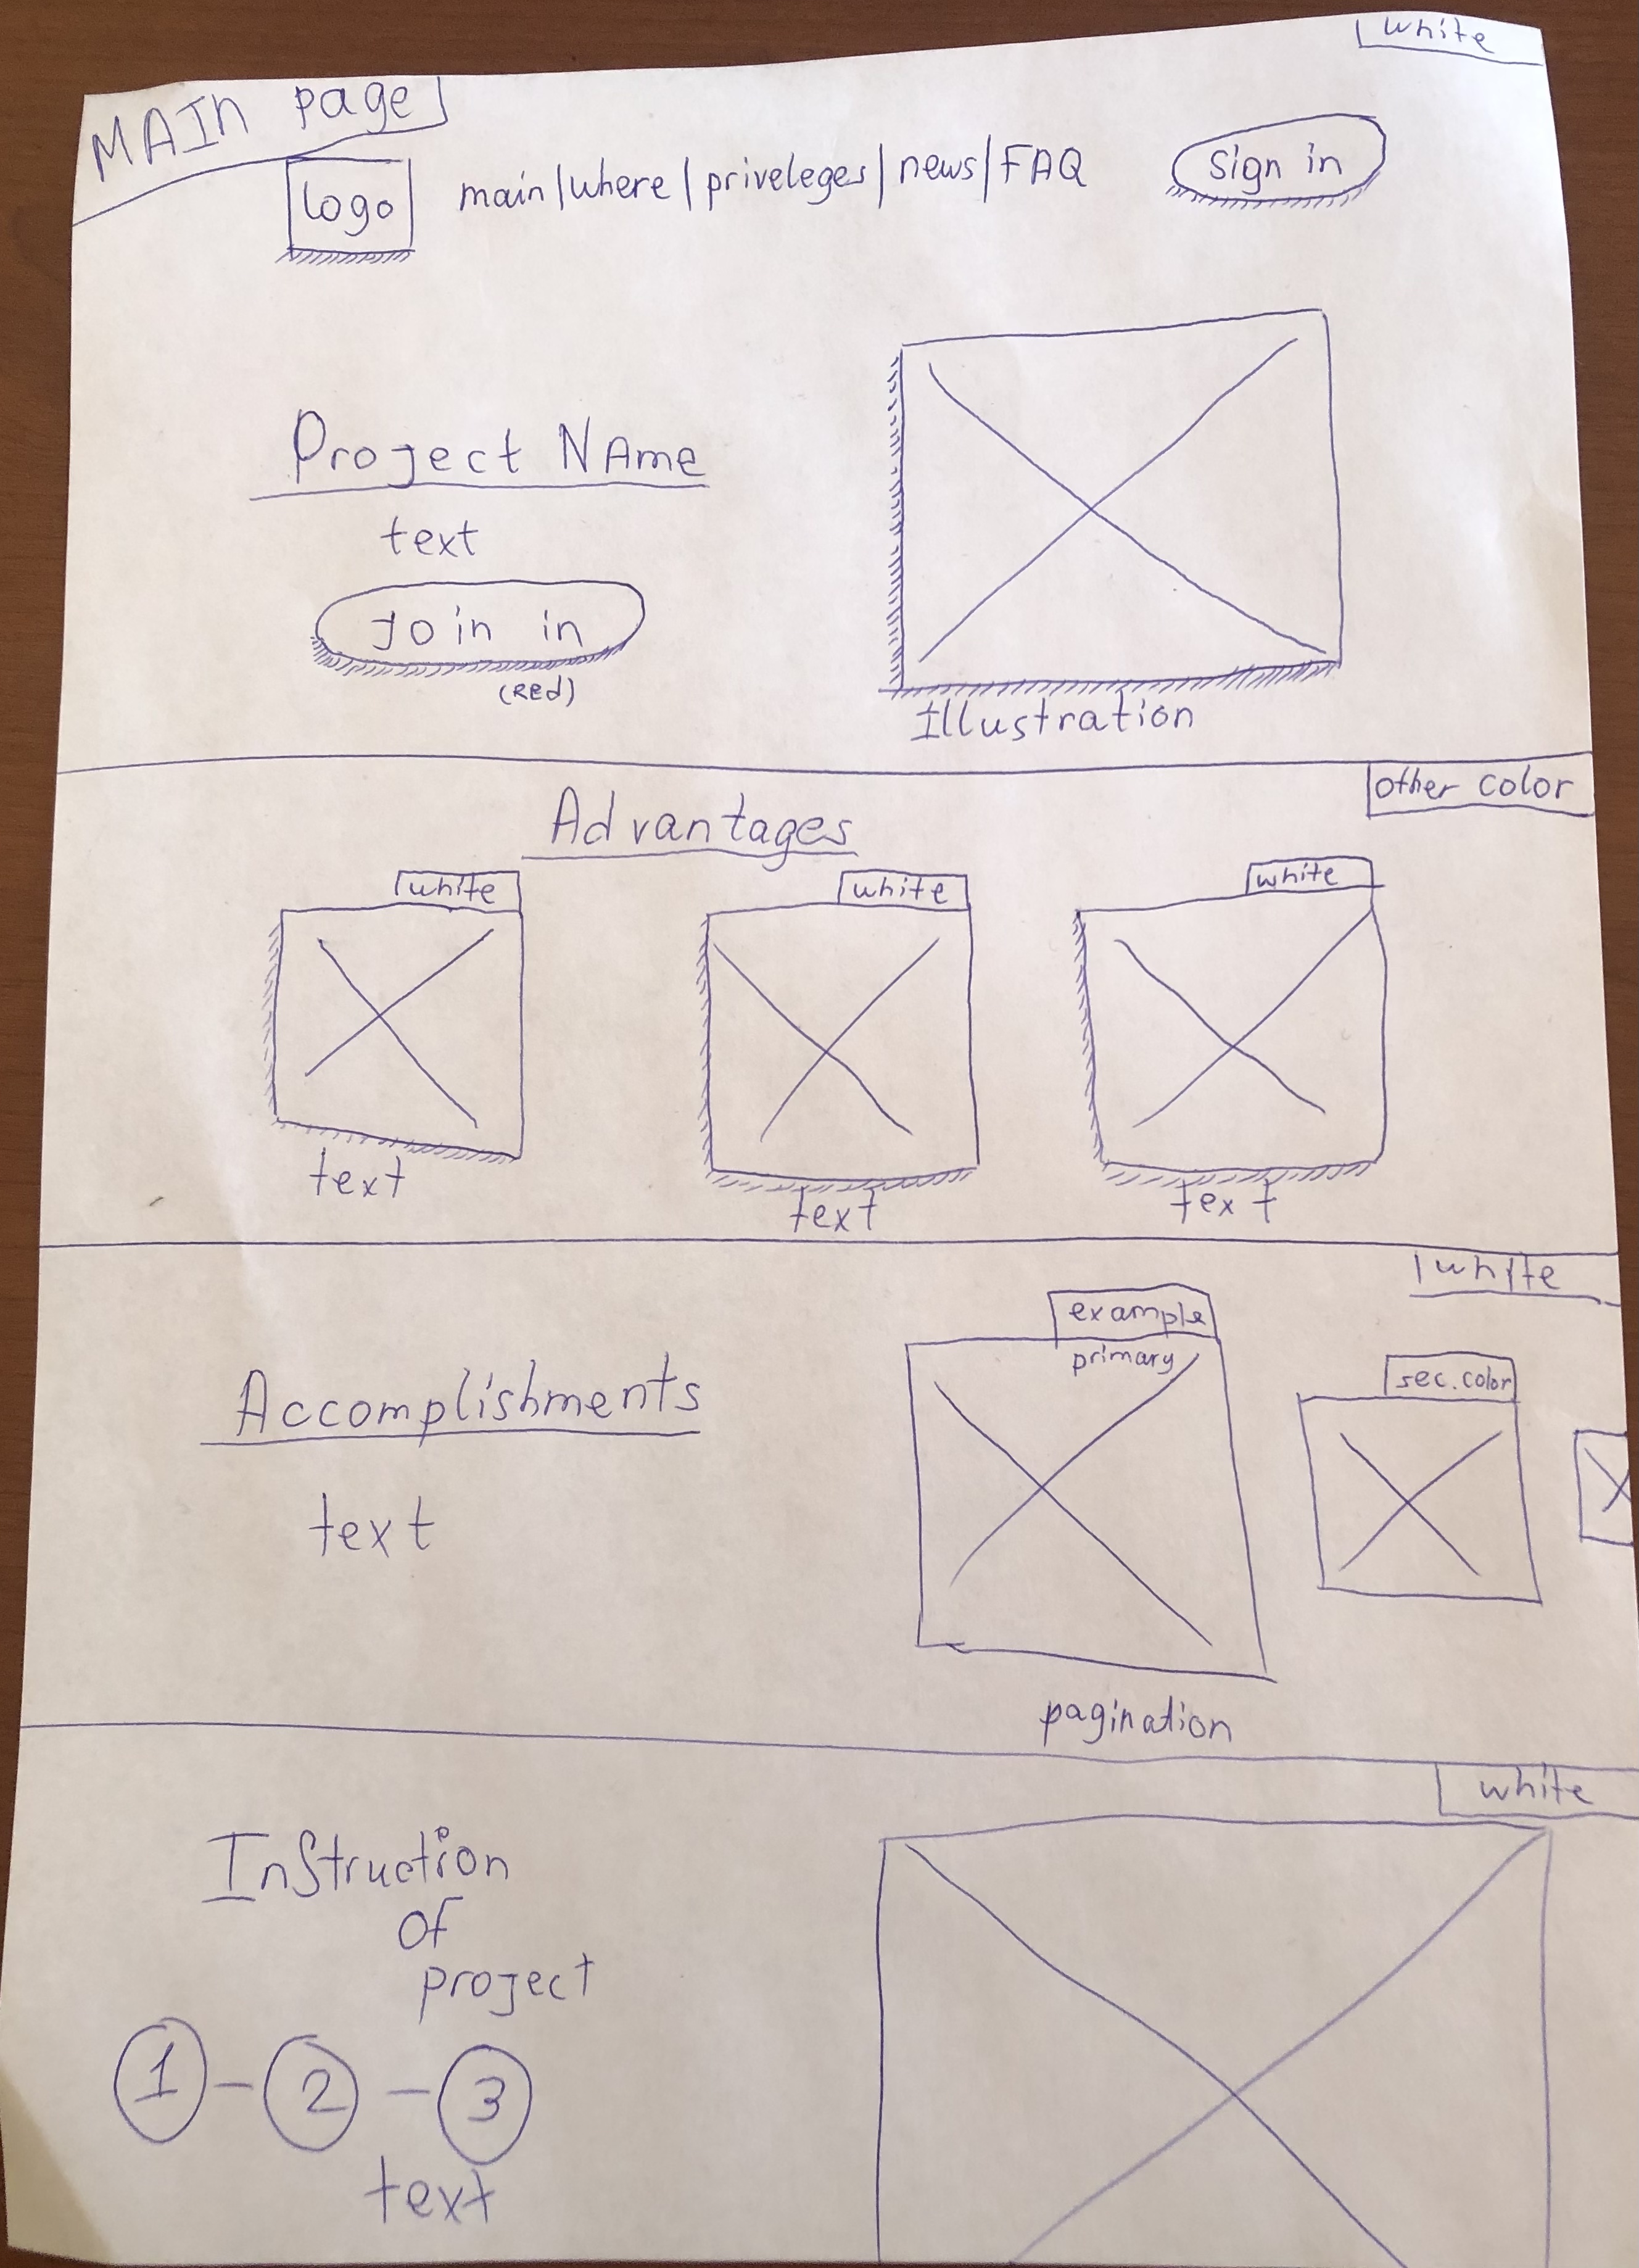 white
MAIn page
logo
main|where|priveleges|news|FAQ
Sign in
Project NAme
text
Join in
(Red)
Illustration
other color
Advantages
white
white
white
text
text
text
white
example
primary
sec. color
Accomplishments
text
pagination
white
Instruction
of
project
1-2-3
text